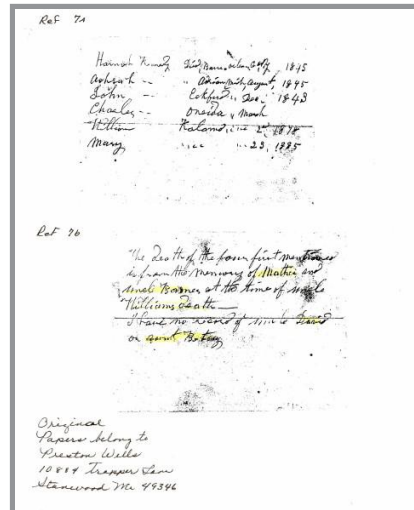 Ref 7a
Hannah Died 1845
" Adrian Mich, August, 1845
John -- Eckford " Dec. 1843
Charles -- Oneida " March
William Kalamazoo 2nd 1878
Mary " " " 23, 1885
Ref 7b
The death of the four first mentioned
is from the memory of Mother and
uncle at the time of uncle
Williams death
I have no record of uncle David
or aunt Betsey
Original
Papers belong to
Preston Wells
10884 Trapper Lane
Stanwood Mi 49346